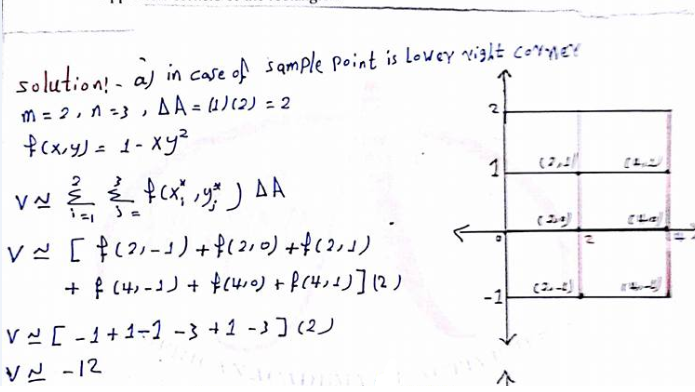 solution:- a) in case of sample point is lower right corner
m = 2, n = 3, ΔA = (1)(2) = 2
f(x,y) = 1 - xy²
V ≃ Σ²ᵢ₌₁ Σ³ⱼ₌ f(xᵢ*, yⱼ*) ΔA
V ≃ [ f(2,-1) + f(2,0) + f(2,1)
+ f(4,-1) + f(4,0) + f(4,1)] (2)
V ≃ [ -1 + 1 - 1 - 3 + 1 - 3 ] (2)
V ≃ -12
2
1
(2,1)
(2,0)
0
2
-1